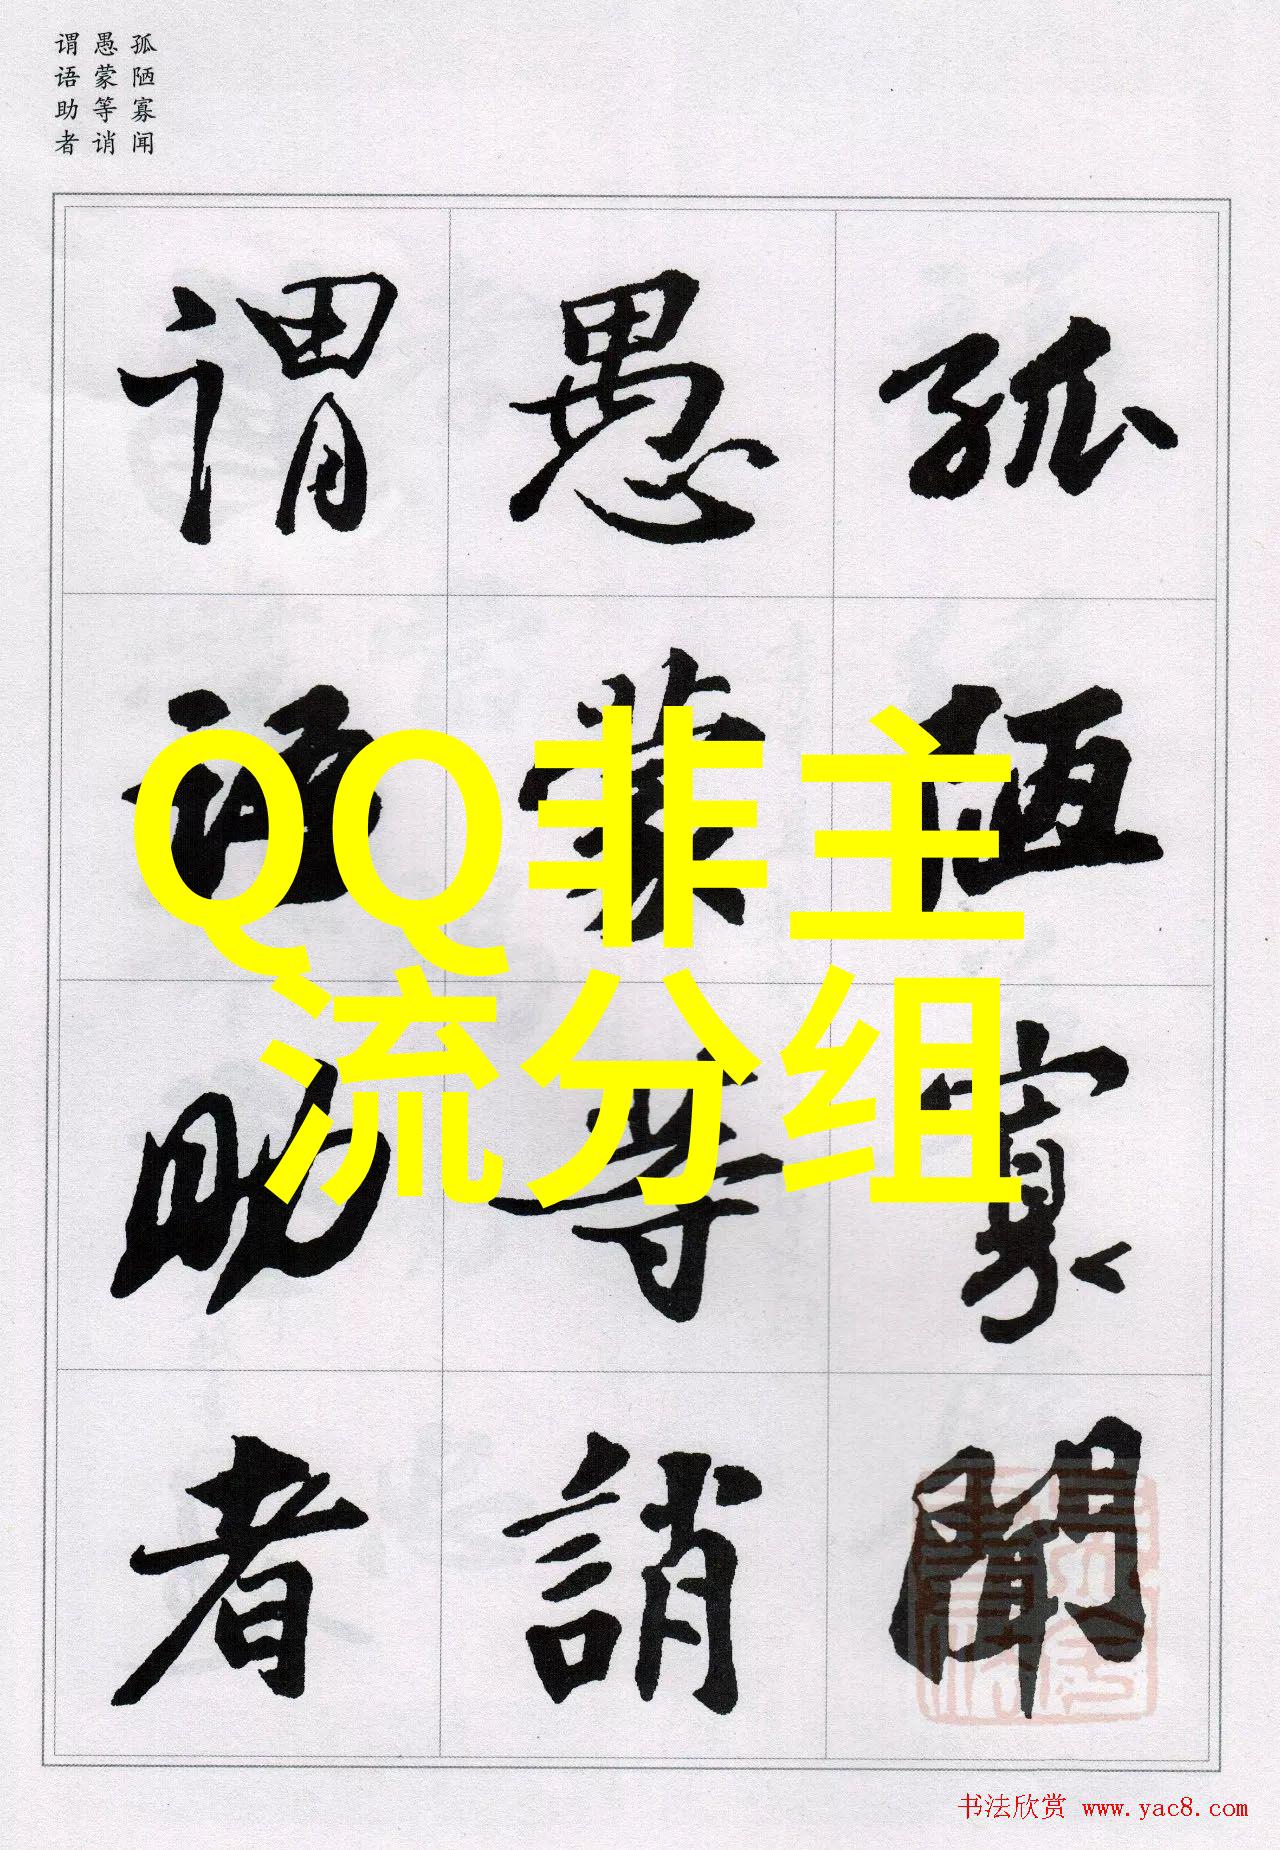 孤陋寡闻
愚蒙等诮
谓语助者
孤陋寡聞
愚蒙等誚
谓语助者
QQ非主
流分组
书法欣赏 www.yac8.com